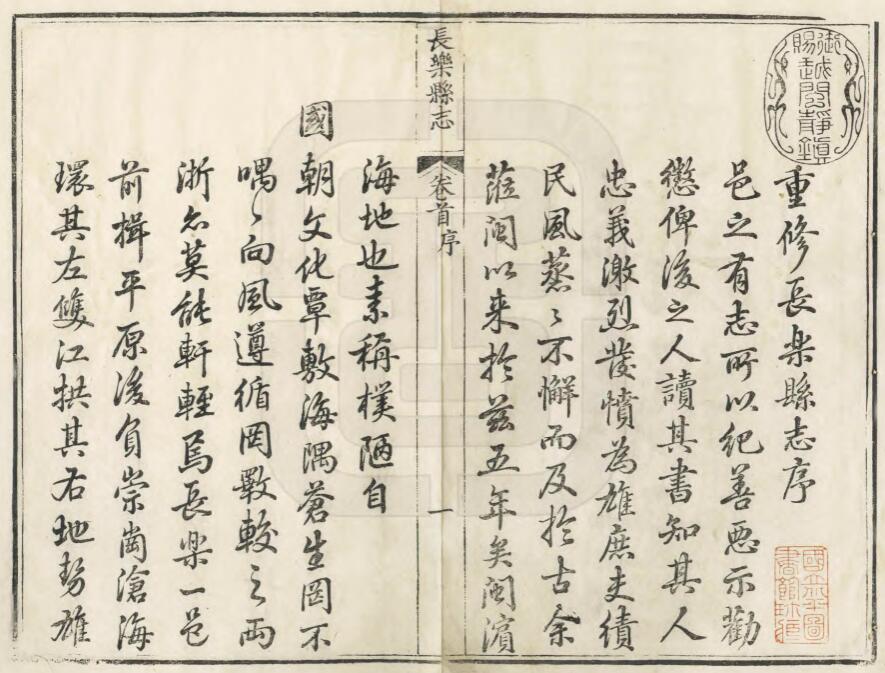 重修長樂縣志序
邑之有志所以紀善惡示勸
懲俾後之人讀其書知其人
忠義激烈發憤為雄庶吏績
民風蒸〻不懈而及於古余
蒞閩以来於茲五年矣閩濱
長樂縣志
卷首序
一
海地也素稱樸陋自
國朝文化覃敷海隅蒼生罔不
喁〻向風遵循罔斁較之兩
浙名莫能軒輊焉長樂一邑
前揖平原後負崇崗滄海
環其左雙江拱其右地勢雄
御賜越閩靜鎮